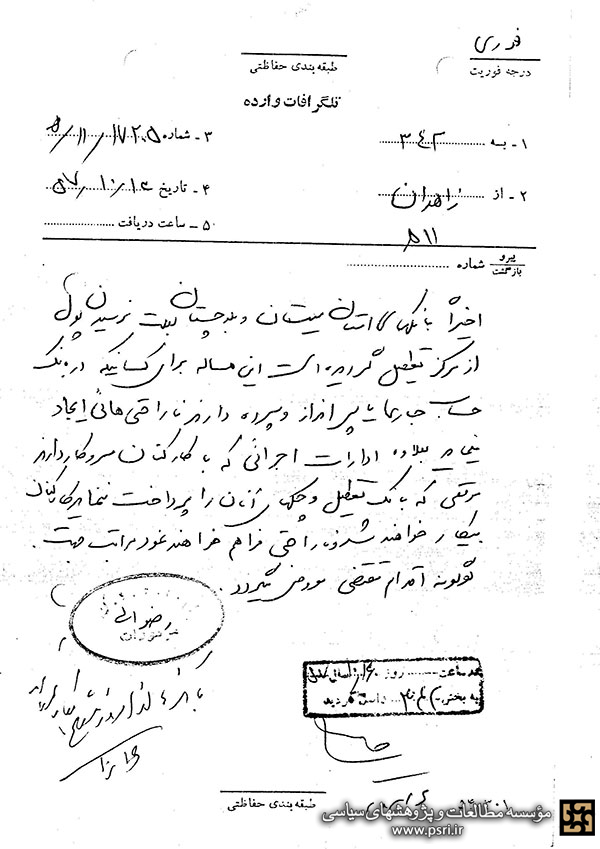 فوری
درجه فوریت
طبقه‌بندی حفاظتی
تلگرافات وارده
۱ - به ۳۴۲
۳ - شماره
۲ - از زاهدان
۴ - تاریخ ۵۷/۱۰/۱۴
۵ - ساعت دریافت
۵۱۱
پیرو
بازگشت
شماره
اخیراً بانکهای استان سیستان و بلوچستان بعلت نرسیدن پول
از مرکز تعطیل گردیده است این مساله برای کسانیکه در بانک
حساب جاری یا پس انداز و سپرده دارند ناراحتی هائی ایجاد
مینماید بعلاوه ادارات اجرائی که با کارکنان سروکار دارند
موقعی که بانک تعطیل و چکهای آنان را پرداخت ننماید کارکنان
بیکار خواهند شد و ناراحتی فراهم خواهند نمود مراتب جهت
هرگونه اقدام مقتضی معروض میگردد.
رضوانی
ساعت روز
به بخش گردید
طبقه‌بندی حفاظتی
مؤسسه مطالعات و پژوهشهای سیاسی
www.psri.ir